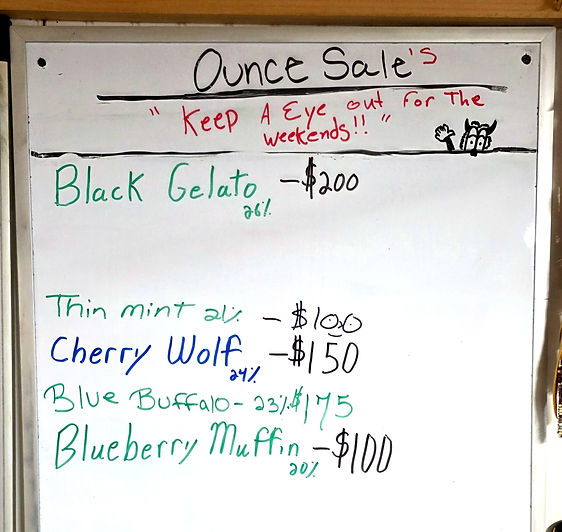 Ounce Sale's
" Keep A Eye out For The
weekends!! "
Black Gelato 26% -$200
Thin mint 21% - $100
Cherry Wolf 24% -$150
Blue Buffalo - 23% $175
Blueberry Muffin 20% -$100